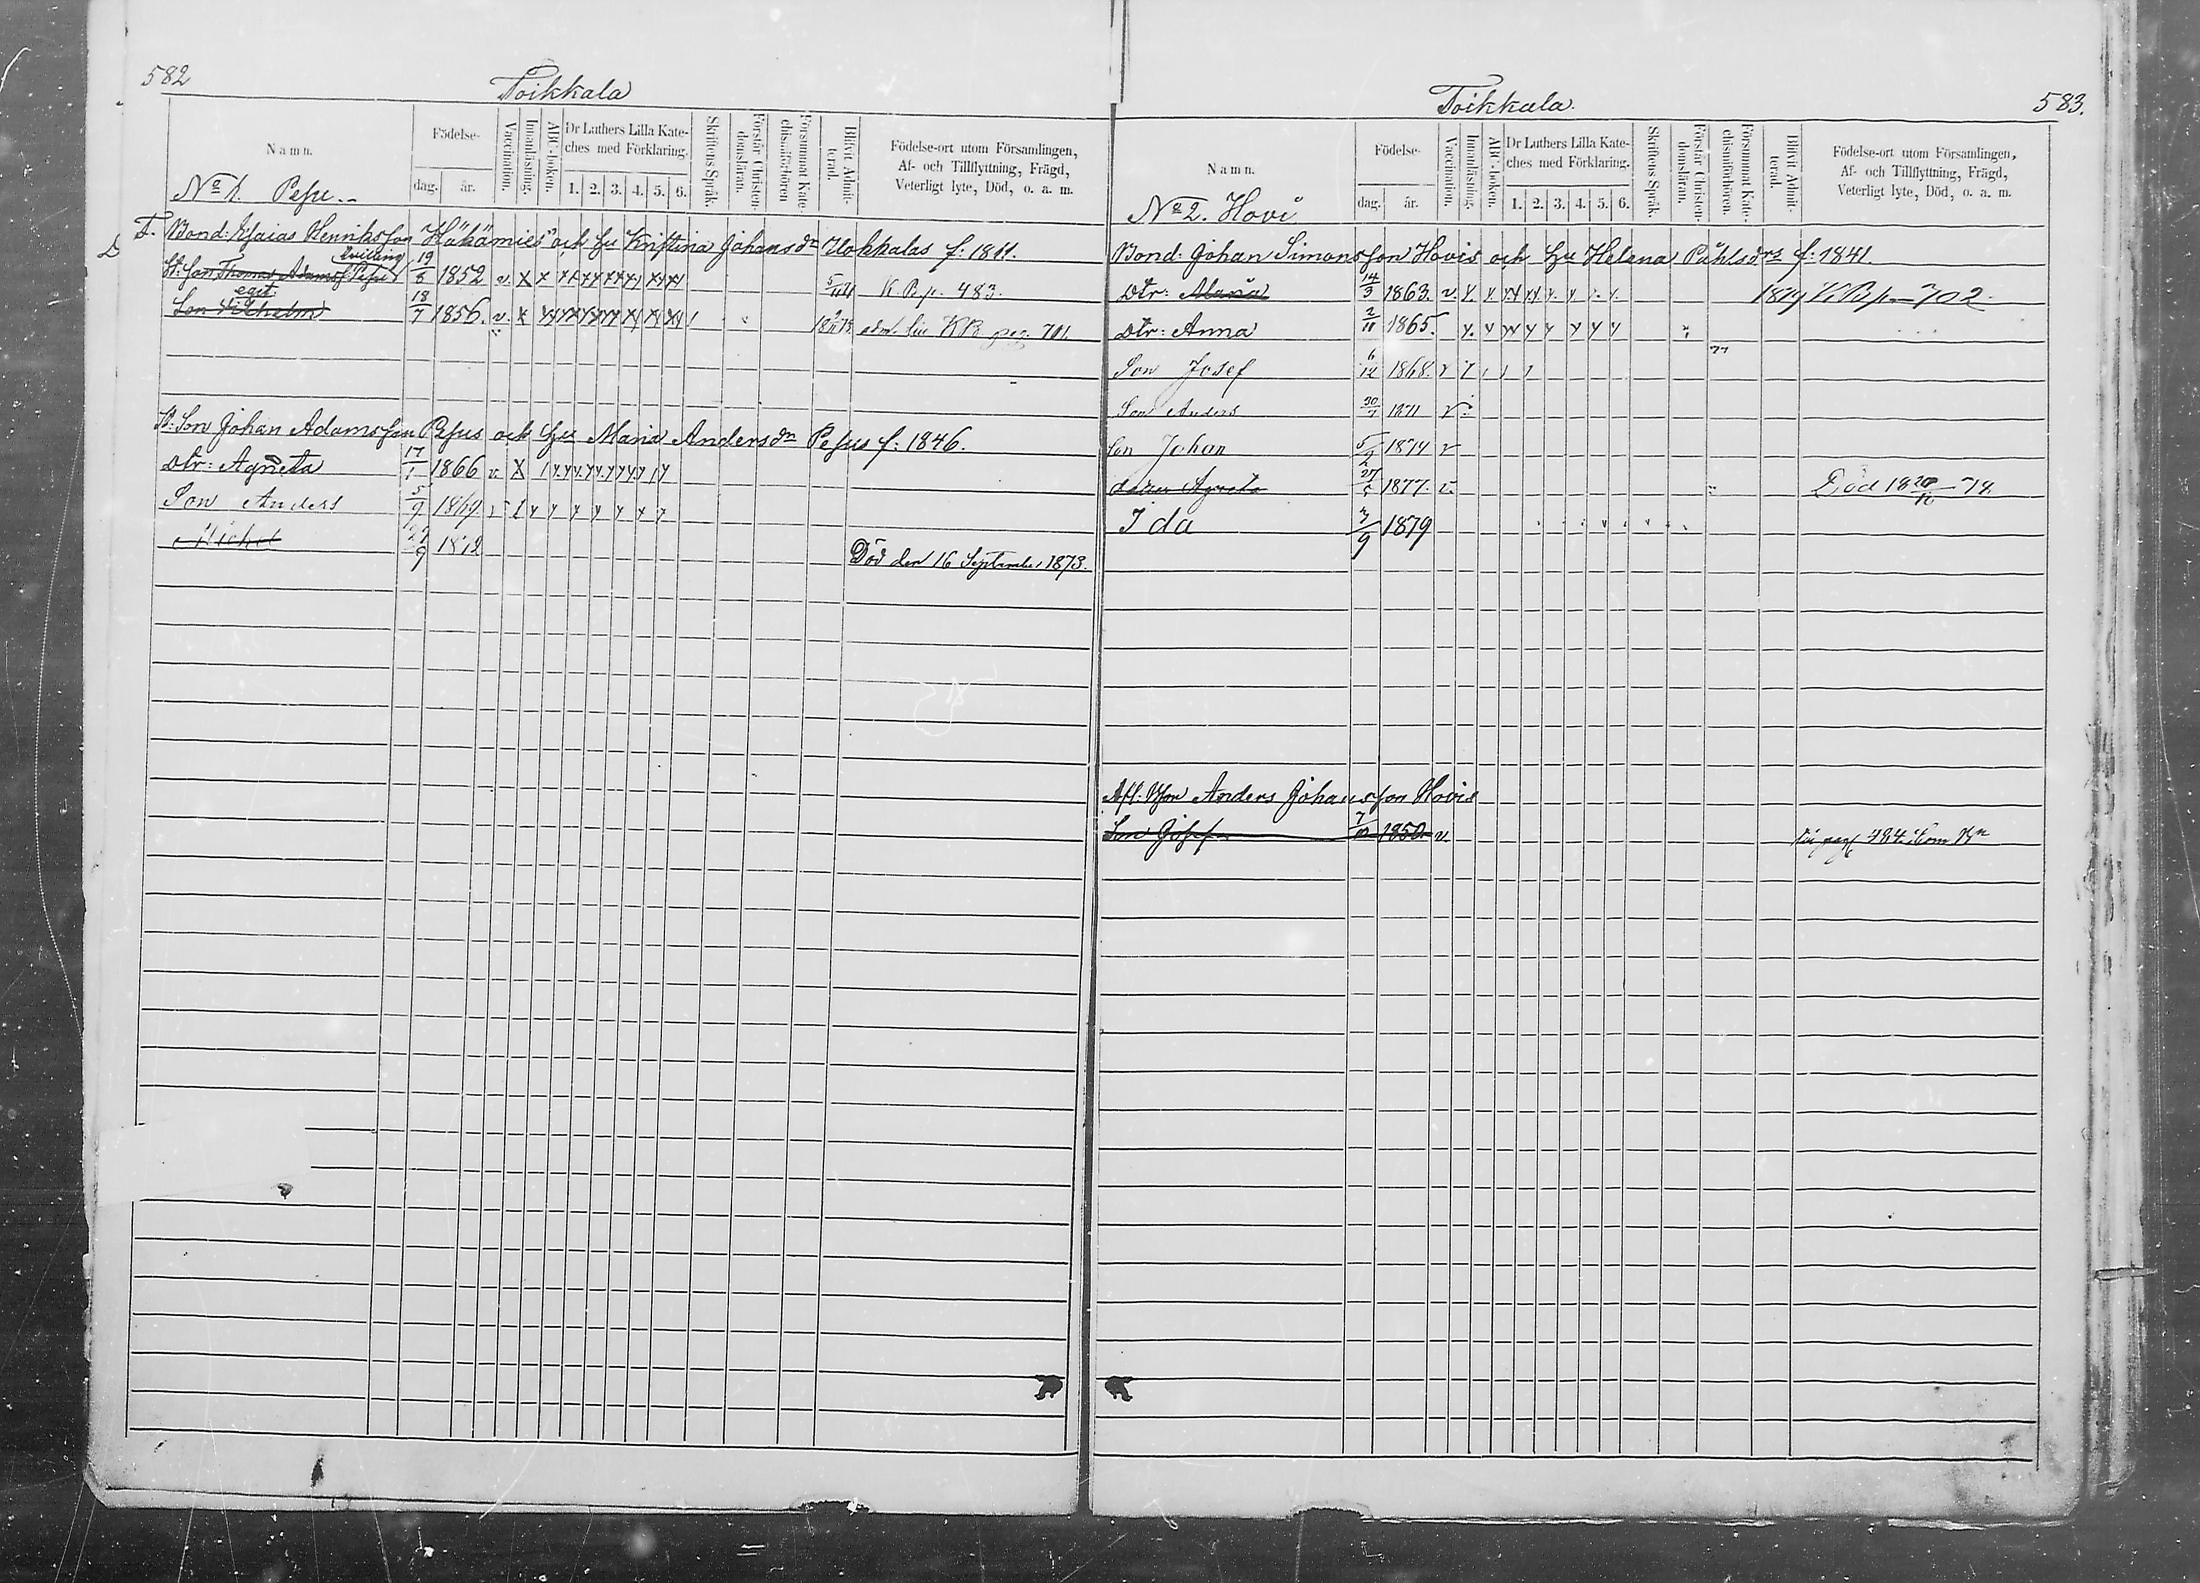 582
Toikkala
Namn.
Födelse-
dag.
år.
Vaccination.
Innanläsning.
ABC-boken.
Dr Luthers Lilla Kate-
ches med Förklaring.
1. 2. 3. 4. 5. 6.
Skriftens Språk.
Förstår Christen-
domsläran.
Försummat Kate-
chismiförhören
Blifvit Admit-
terad.
Födelse-ort utom Församlingen,
Af- och Tillflyttning, Frägd,
Veterligt lyte, Död, o. a. m.
No 1. Pesu.
Bond: Esaias Henriksson Häkämies och Hu Kristina Johansdr f: 1811.
tvilling
St: Son Thomas Adamsf Pesus 19/8 1852 v. K. B. p. 483.
Son Wilhelm 18/7 1856. v. adm. Se KB pag. 701.
St: Son Johan Adamsson Pesus och Hu Maria Andersdr Pesus f: 1846.
Dtr: Agneta 17/1 1866 v.
Son Anders 5/9 1869
Michel 27/9 1872 Död den 16 September 1873.
Toikkala.
583.
Namn.
Födelse-
dag.
år.
Vaccination.
Innanläsning.
ABC-boken.
Dr Luthers Lilla Kate-
ches med Förklaring.
1. 2. 3. 4. 5. 6.
Skriftens Språk.
Förstår Christen-
domsläran.
Försummat Kate-
chismiförhören.
Blifvit Admit-
terad.
Födelse-ort utom Församlingen,
Af- och Tillflyttning, Frägd,
Veterligt lyte, Död, o. a. m.
No 2. Hovi
Bond: Johan Simonsson Hovis och Hu Helena Påhlsdr f: 1841.
Dtr: Maria 14/3 1863. v. 1879 K. B. p. 702.
Dtr: Anna 2/11 1865.
Son Josef 6/12 1868. v
Son Anders 30/7 1871 v.
Son Johan 5/2 1874 v
Agneta 27/5 1877. v. Död 18 20/10 78.
Ida 7/9 1879
Afl: Anders Johansson Hovis
Son 7/10 1850 v.